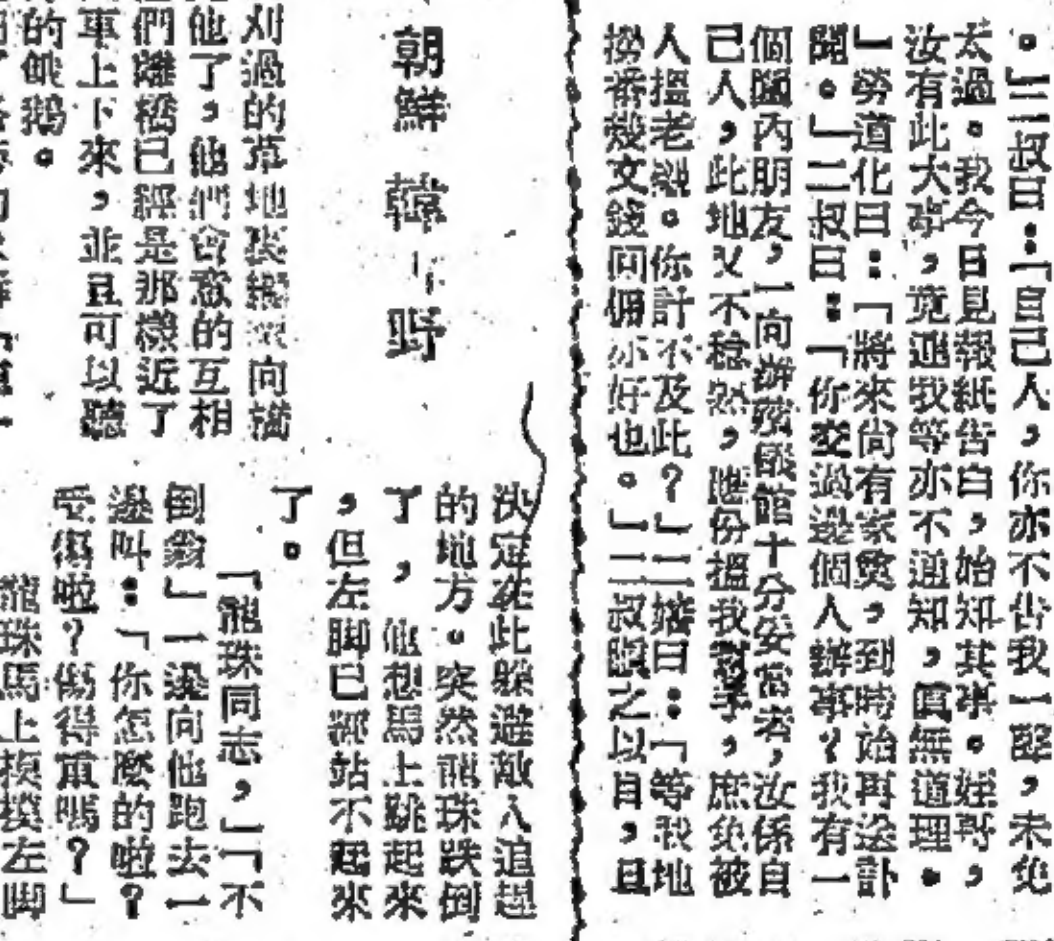 。」二叔曰:「自己人,你亦不告我一聲,未免
太過。我今日見報紙告白,始知其事。姪哥,
汝有此大事,竟連我等亦不通知,眞無道理。
」勞道化曰:「將來尙有家奠,到時始再送訃
聞。」二叔曰:「你交過邊個人辦事?我有一
個國內朋友,一向辦殯儀館十分妥當者,汝係自
己人,此地又不穩然,唔份搵我對手,庶免被
人搵老襯。你計不及此?」二嬸曰:「等我地
撈番幾文錢回佣亦好也。」二叔瞋之以目,且
朝鮮 韓 野
刈過的草地 向橋
他了,他們 的互相
們離橋已經是那樣近了
車上下來,並且可以聽
的餓鵝。
決定在此躲避敵人追趕
的地方。突然龍珠跌倒
了,他想馬上跳起來
,但左脚已經站不起來
了。
「龍珠同志,」「不
倒翁」一邊向他跑去一
邊叫:「你怎麽的啦?
受傷啦?傷得重嗎?」
龍珠馬上摸摸左脚